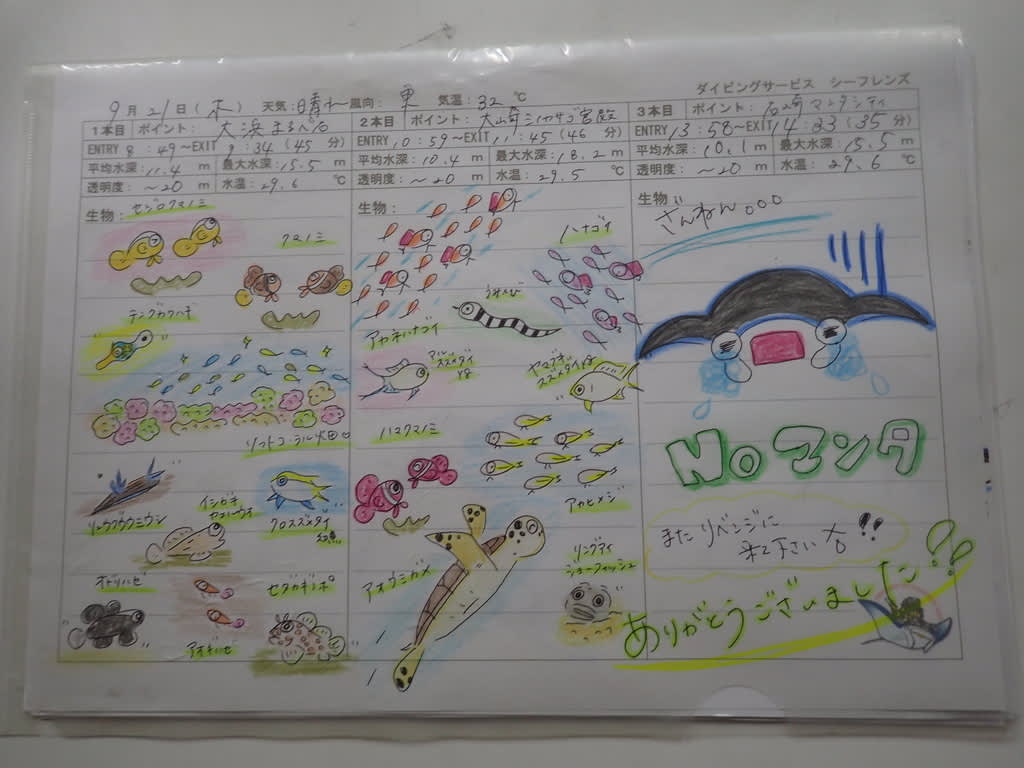 ダイビングサービス シーフレンズ
9月21日(木) 天気:晴れ 風向:東 気温:32℃
1本目 ポイント: 大浜まるべ石
ENTRY 8:49~EXIT 9:34(45分)
平均水深:11.4m 最大水深:15.5m
透明度:~20m 水温:29.6℃
生物: セジロクマノミ
クマノミ
テングカワハギ
ソフトコーラル畑
リュウグウウミウシ
イシガキ
クロスズメダイ
オドリハゼ
アオギハゼ
セダカギンポ
2本目 ポイント: 大崎ミノカサゴ宮殿
ENTRY 10:59~EXIT 11:45(46分)
平均水深:10.4m 最大水深:18.2m
透明度:~20m 水温:29.5℃
生物:
ハナゴイ
アカネハナゴイ
マルスズメダイyg
ヤマブキスズメダイyg
ハマクマノミ
アカヒメジ
アオウミガメ
リングアイ
ジョーフィッシュ
3本目 ポイント: 石崎マンタシティ
ENTRY 13:58~EXIT 14:33(35分)
平均水深:10.1m 最大水深:15.5m
透明度:~20m 水温:29.6℃
生物:
ざんねん。。。
Noマンタ
またリベンジに
来て下さい!!
ありがとうございました!!